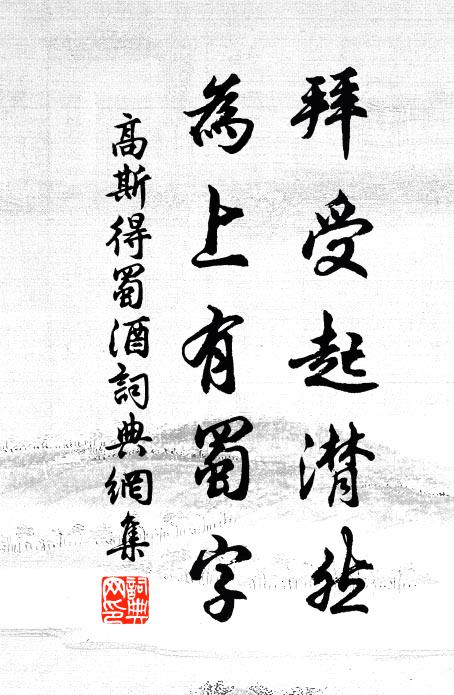 拜受起潸然
為上有蜀字
高斯得蜀酒詞典網集
詞典网印